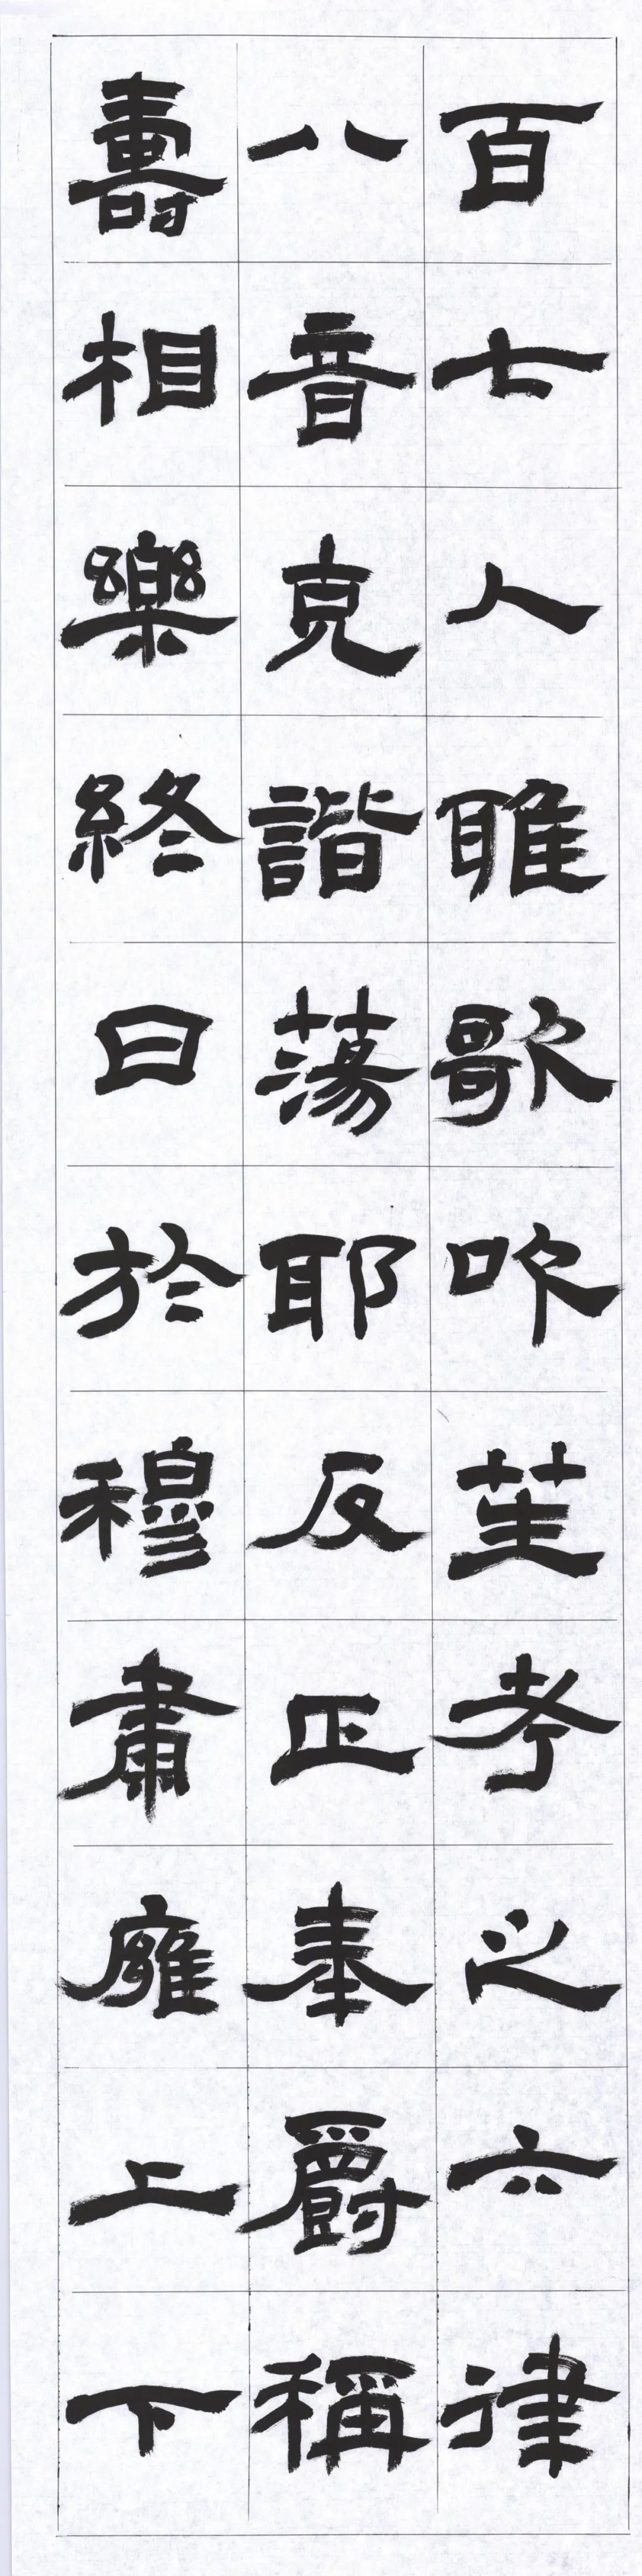 百七人雅歌吹笙考之六律
八音克諧蕩耶反正奉爵稱
壽相樂終日於穆肅廱上下